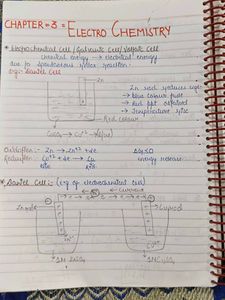 CHAPTER = 3 = ELECTRO CHEMISTRY
* Electrochemical Cell / Galvanic Cell / Voltaic Cell
chemical energy → electrical energy
due to spontaneous redox reaction.
Eg:- Daniel Cell
Zn rod
→ blue colour
→ Red ppt
→ Temperature
Red colour
CuSO4 → Cu2+
Oxidation:- Zn → Zn+2 + 2e
ΔG<0
Reduction:- Cu+2 + 2e → Cu
energy release
blue
* Daniel Cell:- (e.g of electrochemical cell)
e-
Current
Zn rod
Cu rod
Zn2+
Cu2+
1M ZnSO4
1M CuSO4